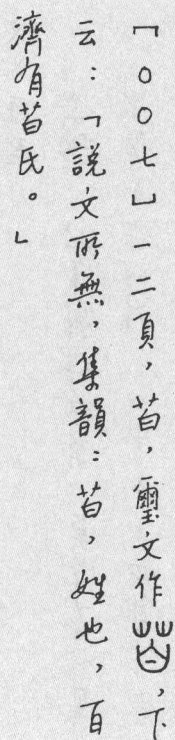 「００七」一二頁，苩，璽文作，下
云：「説文所無，集韻：苩，姓也，百
濟有苩氏。」